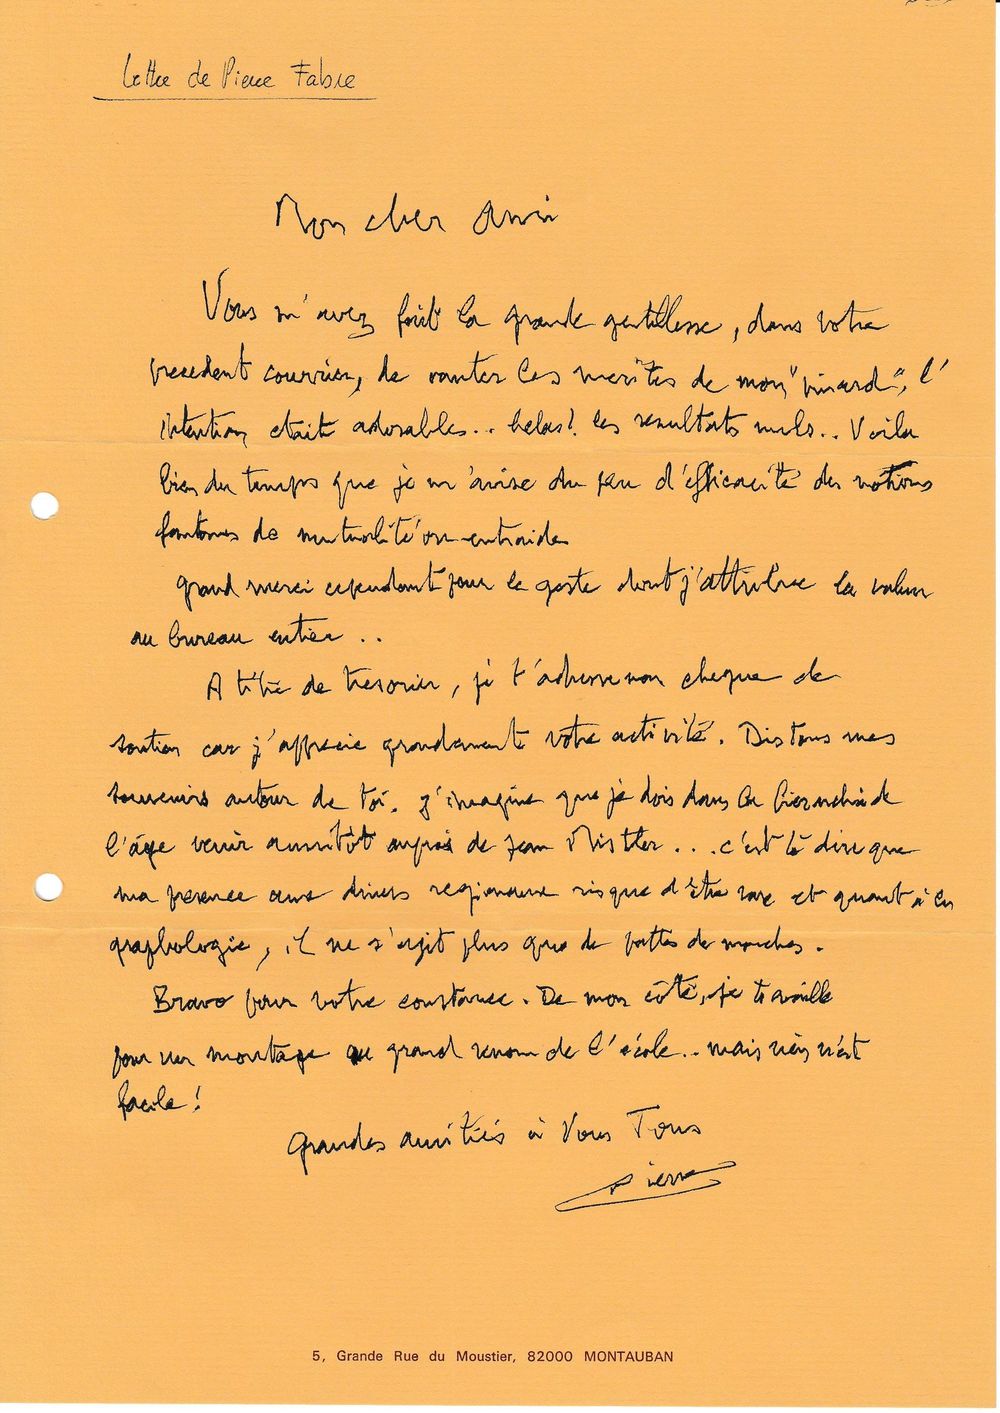 Lettre de Pierre Fabre
Mon cher Ami
Vous m'avez fait la grande gentillesse, dans votre
precedent courrier, de vanter les merites de mon "pinard", l'
intention etait adorable.. helas! les resultats nuls.. Voila
bien du temps que je m'avise du peu d'efficacité des notions
fantomes de mutualité ou entraide
Grand merci cependant pour le geste dont j'attribue la valeur
au bureau entier ..
A titre de tresorier, je t'adresse mon cheque de
soutien car j'apprecie grandement votre activité. Dis tous mes
souvenirs autour de toi. J'imagine que je dois dans la hierarchie de
l'âge venir aussitôt auprès de Jean Mistler... c'est te dire que
ma presence aux diners regionaux risque d'être rare et quant à la
graphologie, il ne s'agit plus que de pattes de mouches.
Bravo pour votre constance. De mon côté, je travaille
pour un montage au grand renom de l'école.. mais rien n'est
facile!
Grandes amitiés à Vous Tous
Pierre
5, Grande Rue du Moustier, 82000 MONTAUBAN